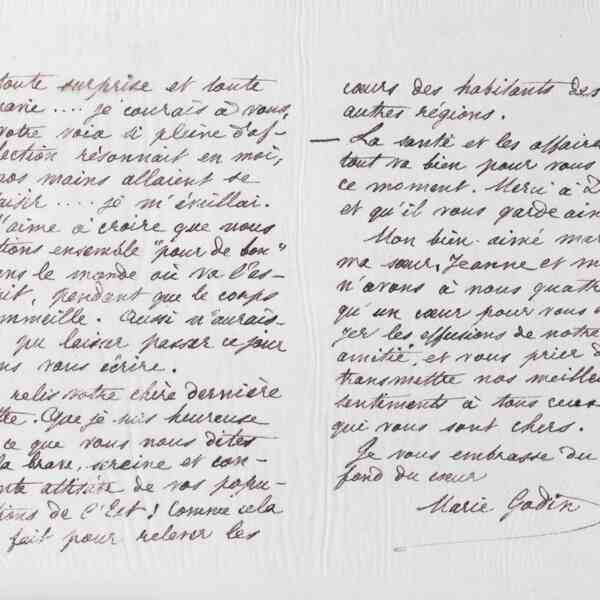 toute surprise et toute
ravie .... je courais à vous,
votre voix si pleine d'af-
fection résonnait en moi,
nos mains allaient se
saisir .... je m'éveillai.
J'aime à croire que nous
étions ensemble "pour de bon"
dans le monde où va l'es-
prit, pendant que le corps
sommeille. Aussi n'aurais-
pu laisser passer ce jour
sans vous écrire.
relis votre chère dernière
lettre. Que je suis heureuse
ce que vous nous dites
la brave, sereine et con-
attitude de vos popu-
lations de l'Est! Comme cela
fait pour relever les
cœurs des habitants des
autres régions.
— La santé et les affaire
tout va bien pour vous
ce moment. Merci à D
et qu'il vous garde ain
Mon bien-aimé mar
ma sœur, Jeanne et m
n'avons à nous quatre
qu'un cœur pour vous
les effusions de notre
amitié, et vous prier d
transmettre nos meilleu
sentiments à tous ceux
qui vous sont chers.
Je vous embrasse du
fond du cœur
Marie Godin